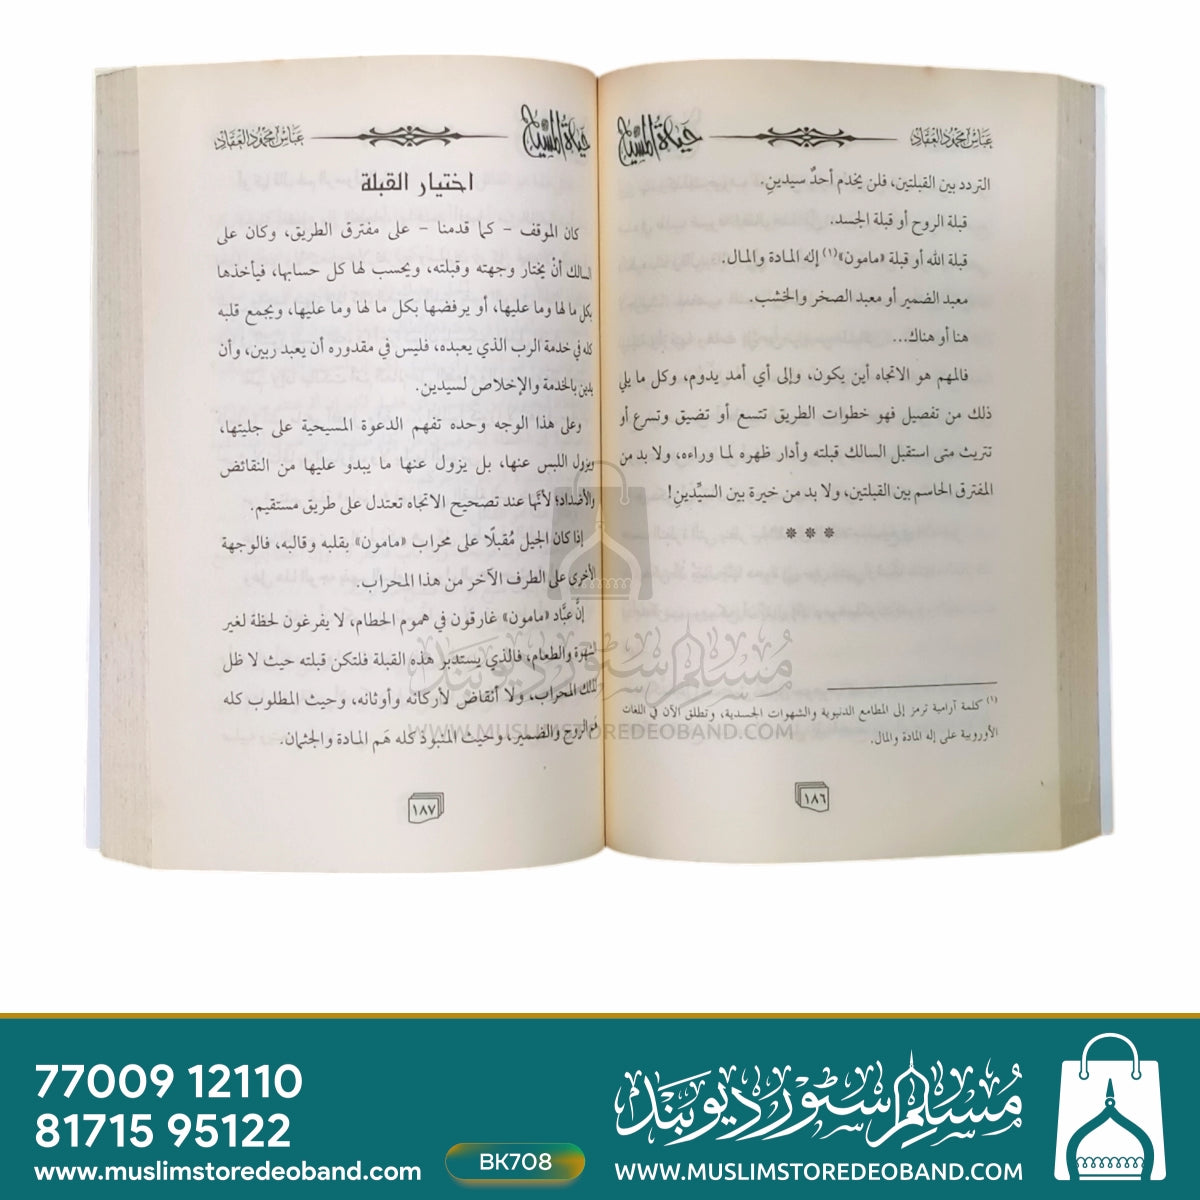 عباس محمود العقاد
حياة المسيح
التردد بين القبلتين، فلن يخدم أحدٌ سيدينِ.
قبلة الروح أو قبلة الجسد.
قبلة الله أو قبلة «مامون»(١) إله المادة والمال.
معبد الضمير أو معبد الصخر والخشب.
هنا أو هناك...
فالمهم هو الاتجاه أين يكون، وإلى أي أمد يدوم، وكل ما يلي
ذلك من تفصيل فهو خطوات الطريق تتسع أو تضيق وتسرع أو
تتريث متى استقبل السالك قبلته وأدار ظهره لما وراءه، ولا بد من
المفترق الحاسم بين القبلتين، ولا بد من خيرة بين السيِّدينِ!
* * *
(١) كلمة آرامية ترمز إلى المطامع الدنيوية والشهوات الجسدية، وتطلق الآن في اللغات
الأوروبية على إله المادة والمال.
١٨٦
حياة المسيح
عباس محمود العقاد
اختيار القبلة
كان الموقف - كما قدمنا - على مفترق الطريق، وكان على
السالك أنْ يختار وجهته وقبلته، ويحسب لها كل حسابها، فيأخذها
بكل ما لها وما عليها، أو يرفضها بكل ما لها وما عليها، ويجمع قلبه
كله في خدمة الرب الذي يعبده، فليس في مقدوره أن يعبد ربين، وأن
يدين بالخدمة والإخلاص لسيدين.
وعلى هذا الوجه وحده تفهم الدعوة المسيحية على جليتها،
ويزول اللبس عنها، بل يزول عنها ما يبدو عليها من النقائض
والأضداد؛ لأنَّها عند تصحيح الاتجاه تعتدل على طريق مستقيم.
إذا كان الجيل مُقبلًا على محراب «مامون» بقلبه وقالبه، فالوجهة
الأخرى على الطرف الآخر من هذا المحراب.
إنَّ عبَّاد «مامون» غارقون في هموم الحطام، لا يفرغون لحظة لغير
الشهوة والطعام، فالذي يستدبر هذه القبلة فلتكن قبلته حيث لا ظل
لذلك المحراب، ولا أنقاض لأركانه وأوثانه، وحيث المطلوب كله
هَم الروح والضمير، وحيث المنبوذ كله هَم المادة والجثمان.
١٨٧
مسلم سٹور ديوبند
WWW.MUSLIMSTOREDEOBAND.COM
77009 12110
81715 95122
www.muslimstoredeoband.com
BK708
مسلم سٹور ديوبند
WWW.MUSLIMSTOREDEOBAND.COM